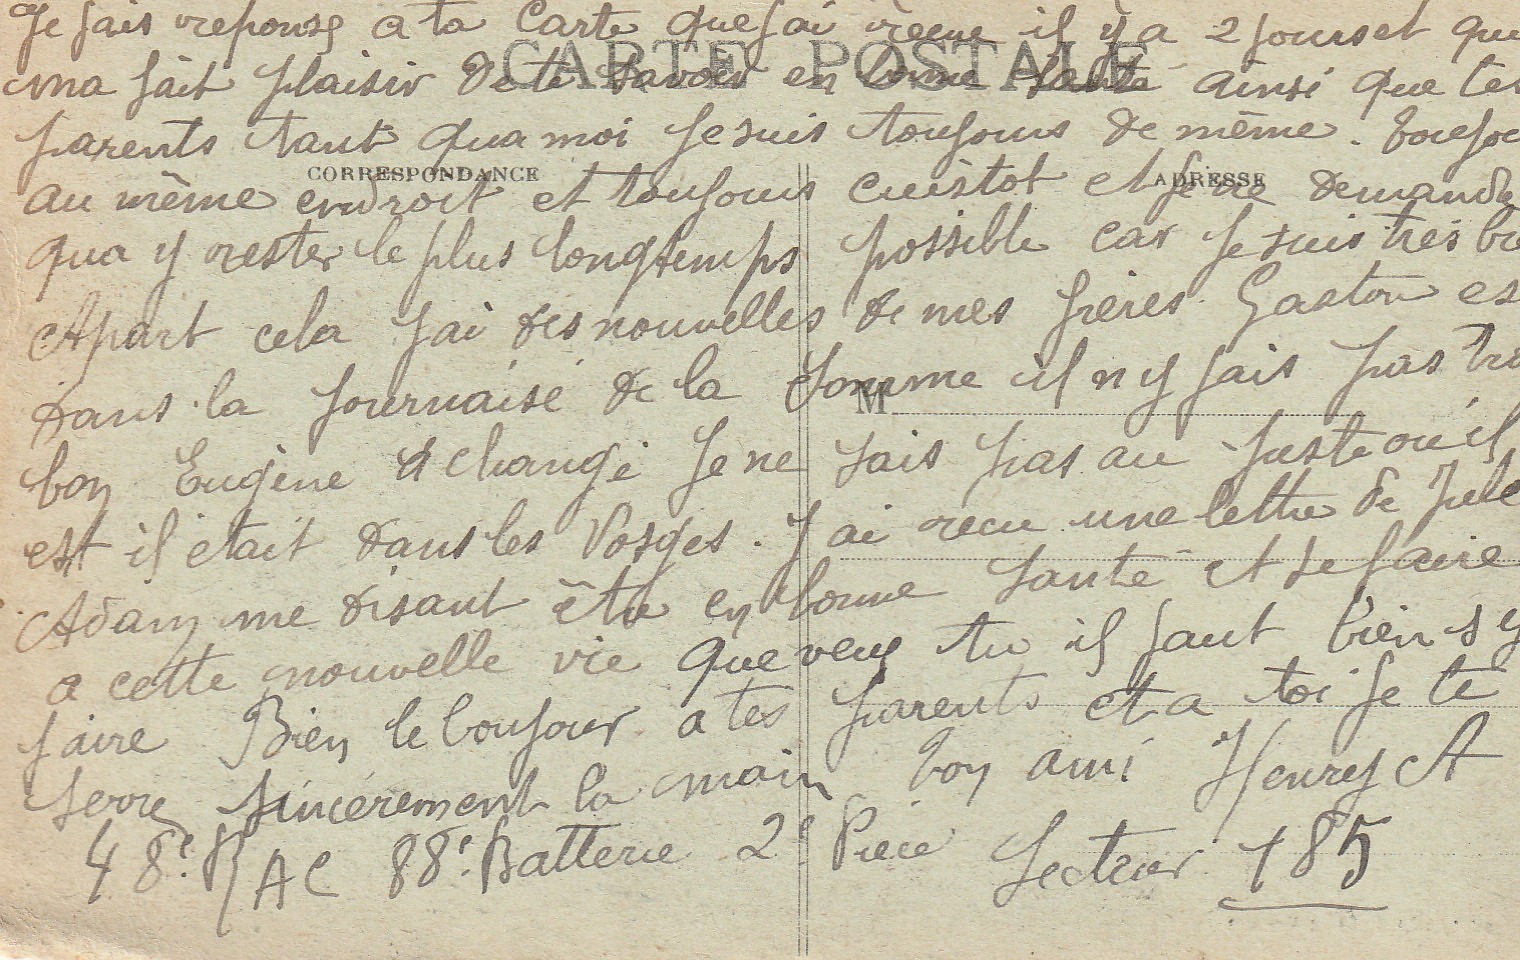 Je fais reponse a ta Carte que jai recue il y a 2 jours et qui
ma fait plaisir de te savoir en bonne santé ainsi que tes
CARTE POSTALE
parents tant qua moi je suis toujours de même. toujou
CORRESPONDANCE
ADRESSE
au même endroit et toujours cuistot et je ne demande
qua y rester le plus longtemps possible car je suis très bie
Apart cela jai des nouvelles de mes frères. Gaston es
dans la fournaise de la Somme il n y fais pas tro
M
bon Eugène a changé je ne sais pas au juste où il
est il etait dans les Vosges. J ai recu une lettre de Jule
Adam me disant être en bonne santé et se faire
a cette nouvelle vie que veux tu il faut bien s y
faire Bien le bonjour a tes parents et a toi je te
serre sincèrement la main ton ami Henry A
48e. RAC 88e. Batterie 2e Pièce Secteur 185